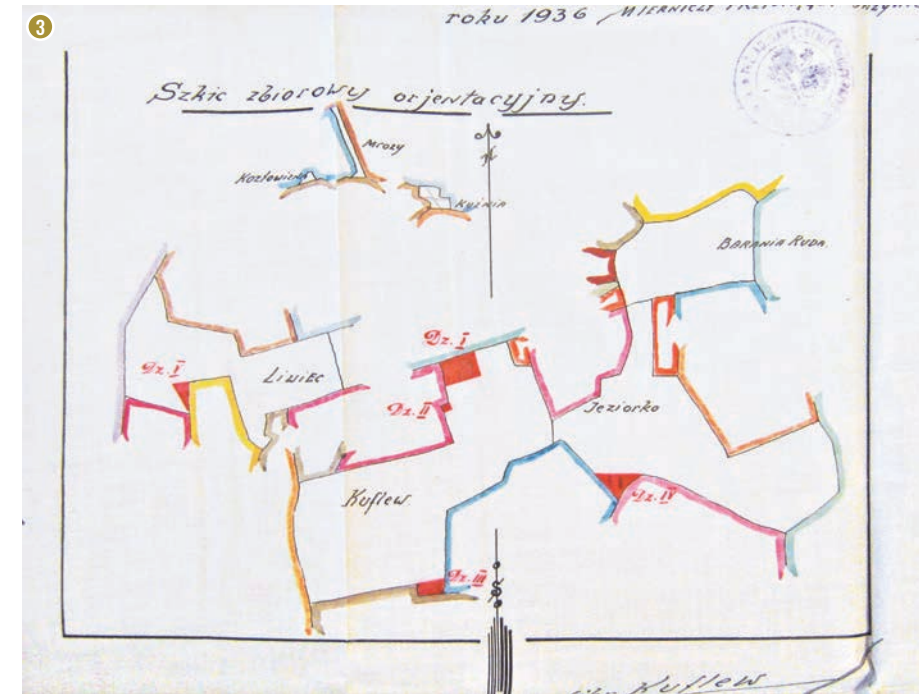 3
roku 1936
Szkic zbiorowy orjentacyjny.
Mrozy
Kozłowizna
Kuźnia
N
BARANIA RUDA.
Dz. I
Dz. V
LIWIEC
Dz. II
Jeziorko
Kuflew.
Dz. IV
Dz. III
Kuflew